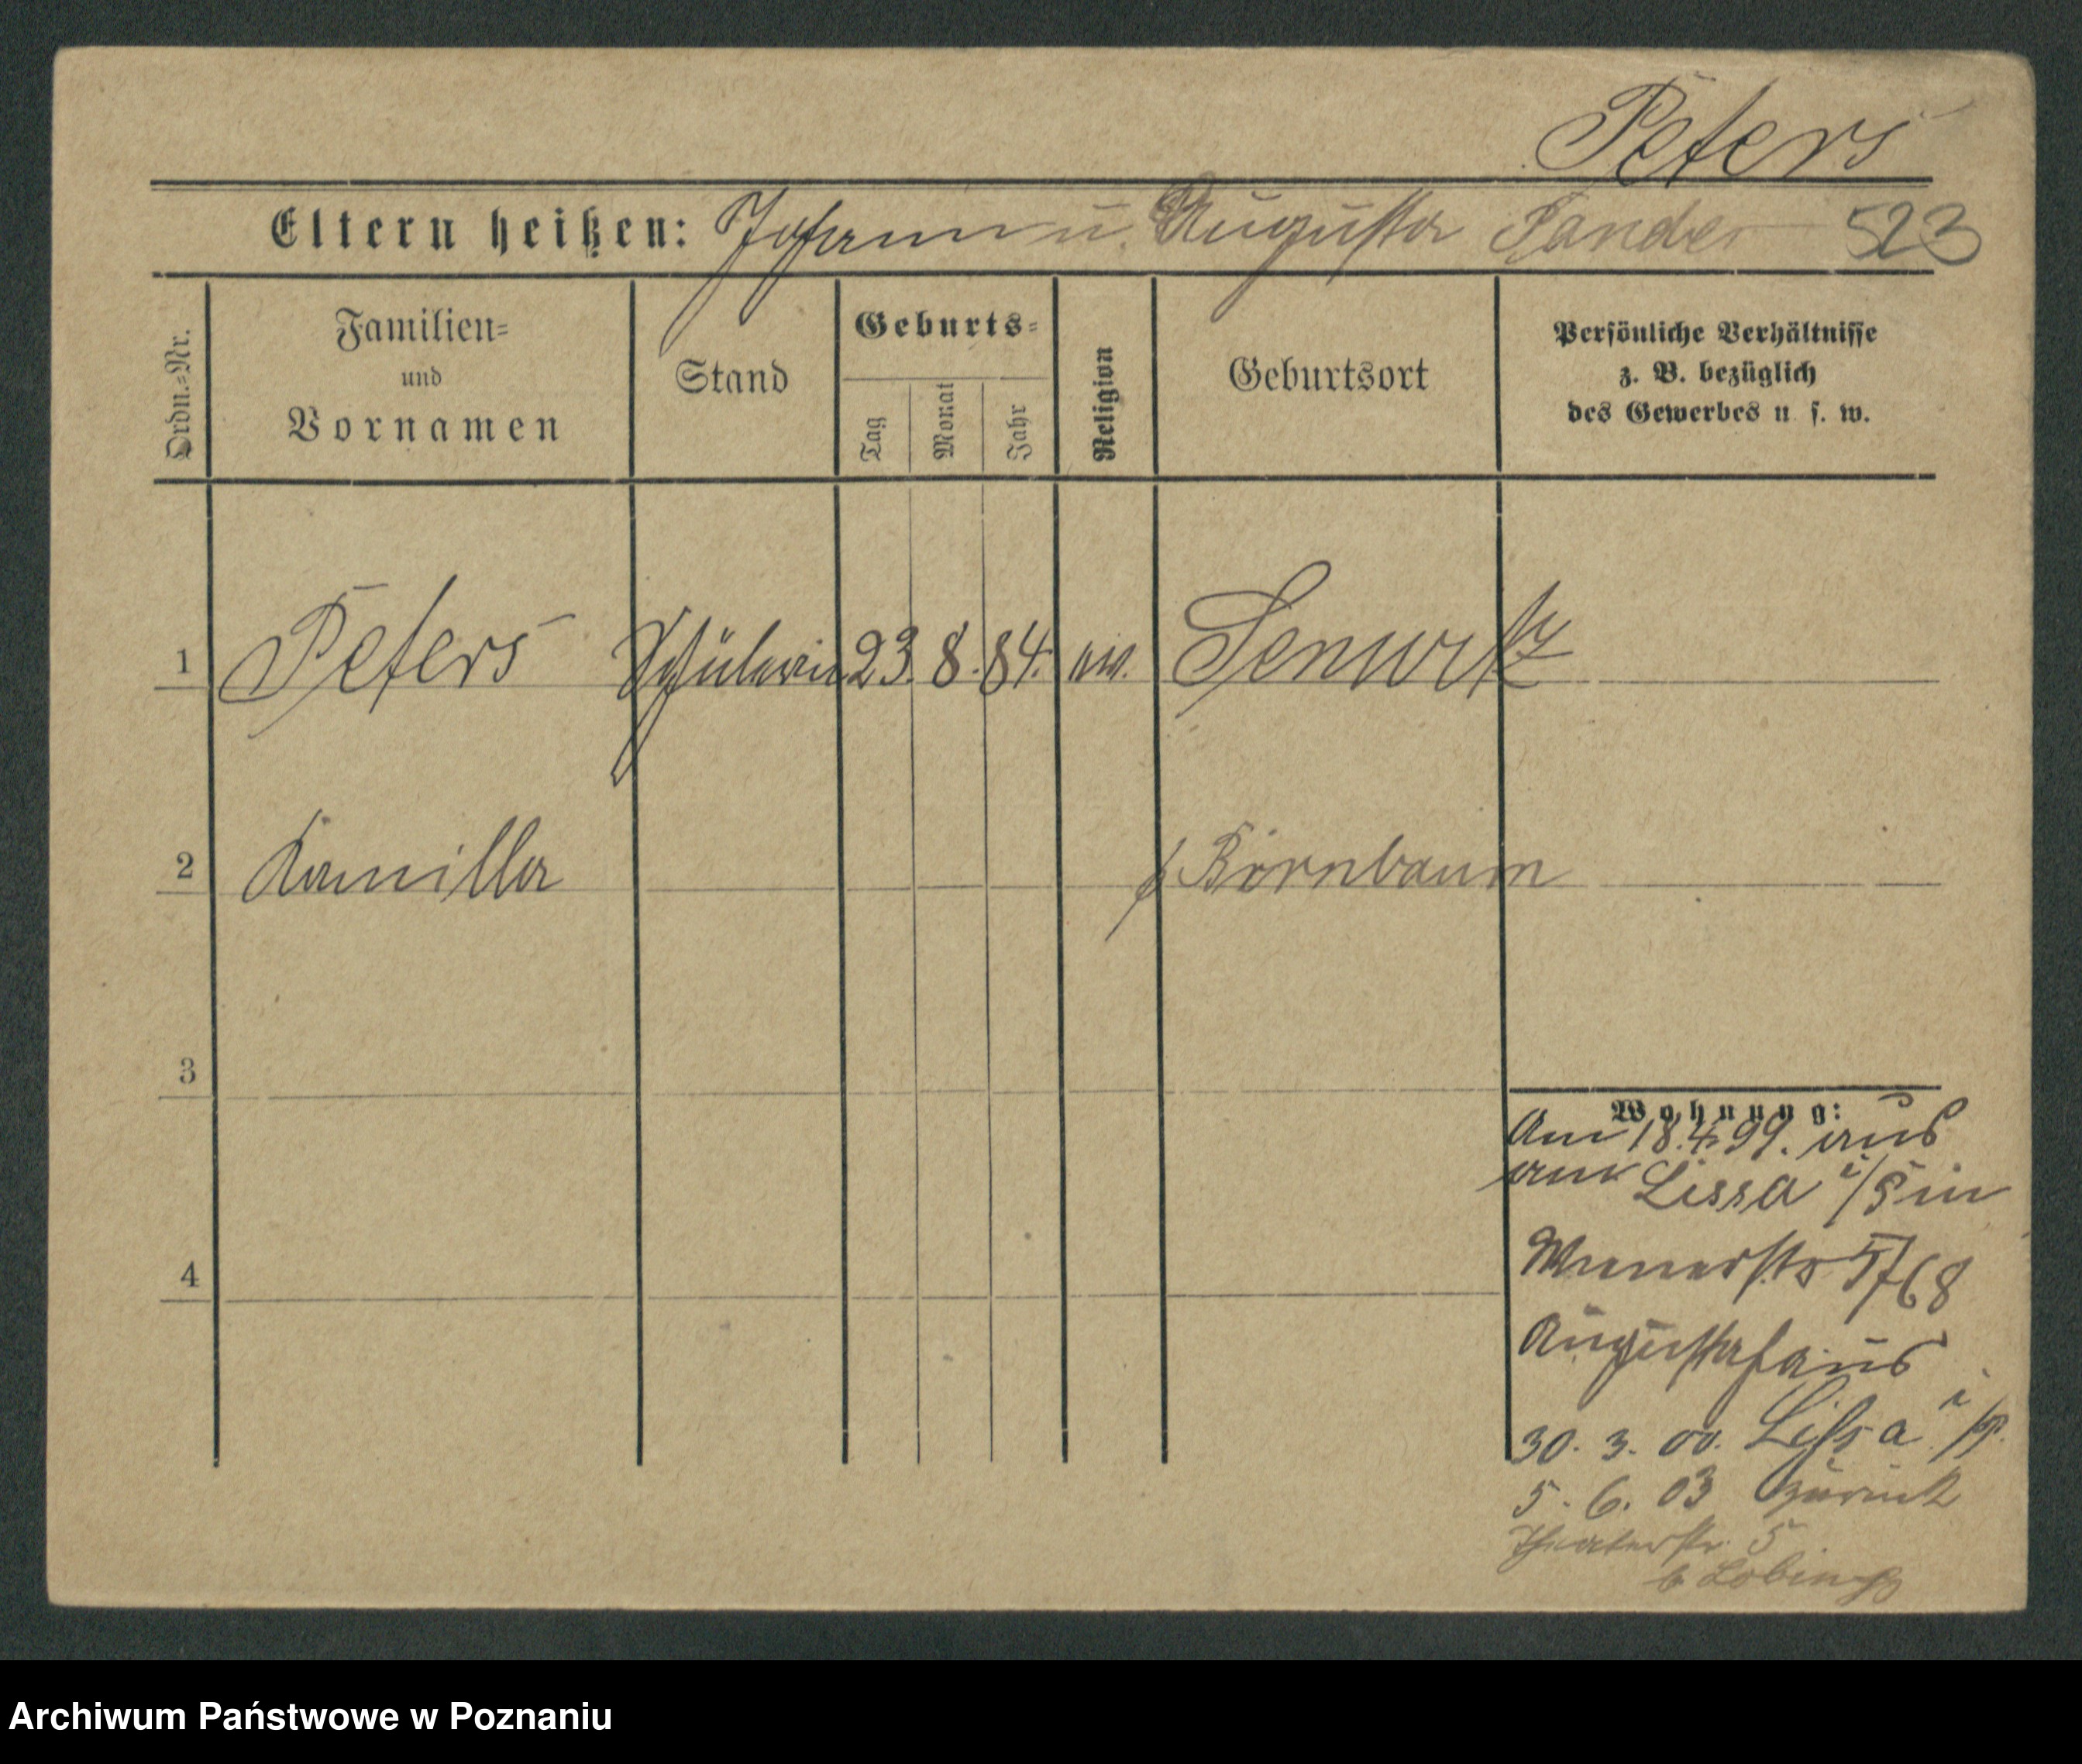 Peters
Eltern heißen: Johann u. Augusta Sander 523
Ordn.=Nr.
Familien=
und
Vornamen
Stand
Geburts=
Tag
Monat
Jahr
Religion
Geburtsort
Persönliche Verhältnisse
z. B. bezüglich
des Gewerbes u. s. w.
1 Peters Schülerin 23. 8. 84. ew.
2 Kamilla Birnbaum
3
4
Wohnung:
Am 18.4.99. aus
Lissa i/P in
Augustahaus
30. 3. 00. Lissa i/P.
5. 6. 03 zurück
Theaterstr. 5
Archiwum Państwowe w Poznaniu